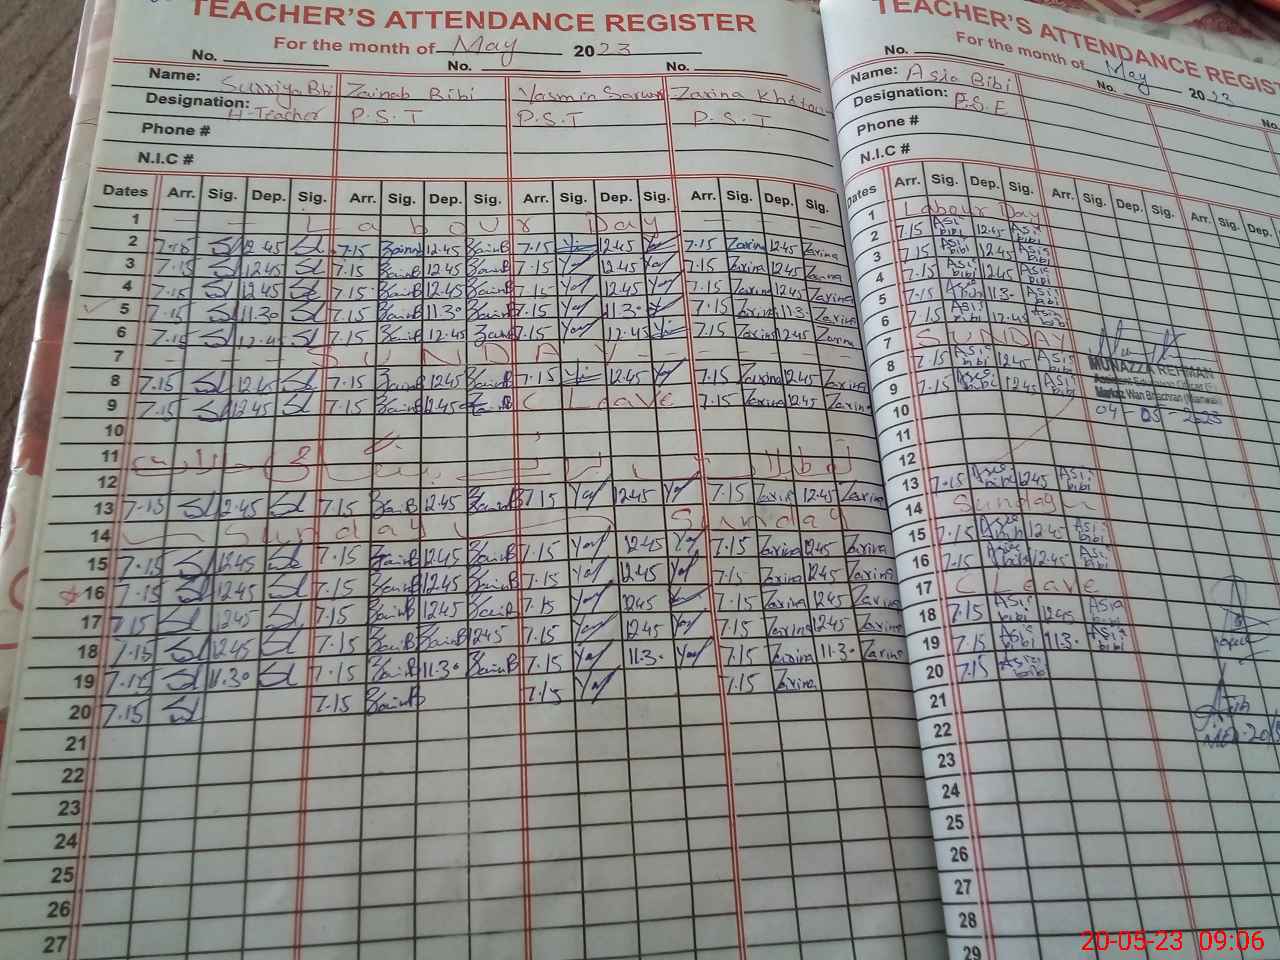 TEACHER'S ATTENDANCE REGISTER
For the month of May 2023
No. No. No.
Name: Surriya Bibi Zainab Bibi Yasmin Sarwar Zarina Khatoon
Designation: H-Teacher P.S.T P.S.T P.S.T
Phone #
N.I.C #
Dates Arr. Sig. Dep. Sig. Arr. Sig. Dep. Sig. Arr. Sig. Dep. Sig. Arr. Sig. Dep. Sig.
1 Labour Day
2 7.15 12.45 7.15 ZainB 12.45 ZainB 7.15 Yas 12.45 Yas 7.15 Zarina 12.45 Zarina
3 7.15 12.45 7.15 ZainB 12.45 ZainB 7.15 Yas 12.45 Yas 7.15 Zarina 12.45 Zarina
4 7.15 12.45 7.15 ZainB 12.45 ZainB 7.15 Yas 12.45 Yas 7.15 Zarina 12.45 Zarina
5 7.15 11.30 7.15 ZainB 11.30 ZainB 7.15 Yas 11.30 7.15 Zarina 11.30 Zarina
6 7.15 12.45 7.15 ZainB 12.45 ZainB 7.15 Yas 12.45 7.15 Zarina 12.45 Zarina
7 SUNDAY
8 7.15 12.45 7.15 ZainB 12.45 ZainB 7.15 12.45 Yas 7.15 Zarina 12.45 Zarina
9 7.15 12.45 7.15 ZainB 12.45 ZainB C Leave 7.15 Zarina 12.45 Zarina
10
11
12
13 7.15 12.45 7.15 ZainB 12.45 ZainB 7.15 Yas 12.45 Yas 7.15 Zarina 12.45 Zarina
14 Sunday Sunday
15 7.15 12.45 7.15 ZainB 12.45 ZainB 7.15 Yas 12.45 Yas 7.15 Zarina 12.45 Zarina
16 7.15 12.45 7.15 ZainB 12.45 ZainB 7.15 Yas 12.45 Yas 7.15 Zarina 12.45 Zarina
17 7.15 12.45 7.15 ZainB 12.45 ZainB 7.15 Yas 12.45 7.15 Zarina 12.45 Zarina
18 7.15 12.45 7.15 ZainB ZainB 12.45 7.15 Yas 12.45 Yas 7.15 Zarina 12.45 Zarina
19 7.15 11.30 7.15 ZainB 11.30 ZainB 7.15 Yas 11.30 Yas 7.15 Zarina 11.30 Zarina
20 7.15 7.15 ZainB 7.15 Yas 7.15 Zarina
21
22
23
24
25
26
27
TEACHER'S ATTENDANCE REGIST
For the month of May 2023
No. No. No.
Name: Asia Bibi
Designation: P.S.E
Phone #
N.I.C #
Dates Arr. Sig. Dep. Sig. Arr. Sig. Dep. Sig. Arr. Sig. Dep.
1 Labour Day
2 7.15 Asia bibi 12.45 Asia bibi
3 7.15 Asia bibi 12.45 Asia bibi
4 7.15 Asia bibi 12.45 Asia bibi
5 7.15 Asia bibi 11.30 Asia bibi
6 7.15 Asia bibi 12.45 Asia bibi
7 SUNDAY
8 7.15 Asia bibi 12.45 Asia bibi
9 7.15 Asia bibi 12.45 Asia bibi
MUNAZZA REHMAN
Markaz Wan Bhachran (Mianwali)
04-05-2023
10
11
12
13 7.15 Asia bibi 12.45 Asia bibi
14 Sunday
15 7.15 Asia bibi 12.45 Asia bibi
16 7.15 Asia bibi 12.45 Asia bibi
17 C Leave
18 7.15 Asia bibi 12.45 Asia bibi
19 7.15 Asia bibi 11.30 Asia bibi
20 7.15 Asia bibi
21
22
23
24
25
26
27
28
29
20-05-23 09:06